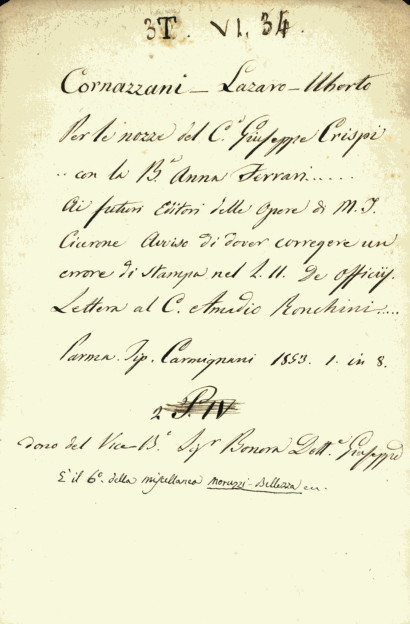 3T. VI. 34.
Cornazzani – Lazaro – Uberto
Per le nozze del C.e Giuseppe Crispi
.. con la B.a Anna Ferrari.....
Ai futuri Editori delle Opere di M. T.
Cicerone Avviso di dover correggere un
errore di stampa nel L. II. De Officiij.
Lettera al C. Amadio Ronchini....
Parma. Tip. Carmignani 1853. 1. in 8.
2 P. IV
dono del Vice-B.o Sigr Bonora Dott.e Giuseppe
È il 6.o della miscellanea Moruzzi-Bellezza